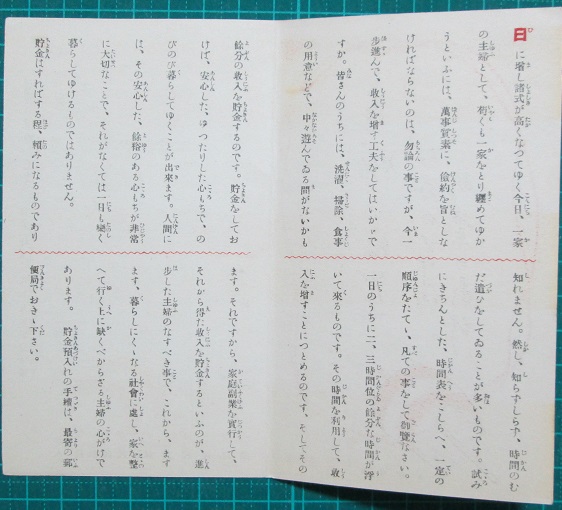 日に增し諸式が高くなつてゆく今日、一家
の主婦として、苟くも一家をとり纏めてゆか
うといふには、萬事質素に、儉約を旨としな
ければならないのは、勿論の事ですが、今一
步進んで、收入を增す工夫をしてはいかゞで
すか。皆さんのうちには、洗濯、掃除、食事
の用意などで、中々遊んでゐる間がないかも
知れません。然し、知らずしらず、時間のむ
だ遣ひをしてゐることが多いものです。試み
にきちんとした、時間表をこしらへ、一定の
順序をたてゝ、凡ての事をして御覽なさい。
一日のうちに二、三時間位の餘分な時間が浮
いて來るものです。その時間を利用して、收
入を增すことにつとめるのです。そしてその
餘分の收入を貯金するのです。貯金をしてお
けば、安心した、ゆつたりした心もちで、の
びのび暮らしてゆくことが出來ます。人間に
は、その安心した、餘裕のある心もちが非常
に大切なことで、それがなくては一日も樂く
暮らしてゆけるものではありません。
貯金はすればする程、賴みになるものであり
ます。それですから、家庭副業を實行して、
それから得た收入を貯金するといふのが、進
步した主婦のなすべき事で、これから、ます
ます、暮らしにくゝなる社會に處し、家を整
へて行く上に缺くべからざる主婦の心がけで
あります。　貯金預入れの手續は、最寄の郵
便局でおきゝ下さい。